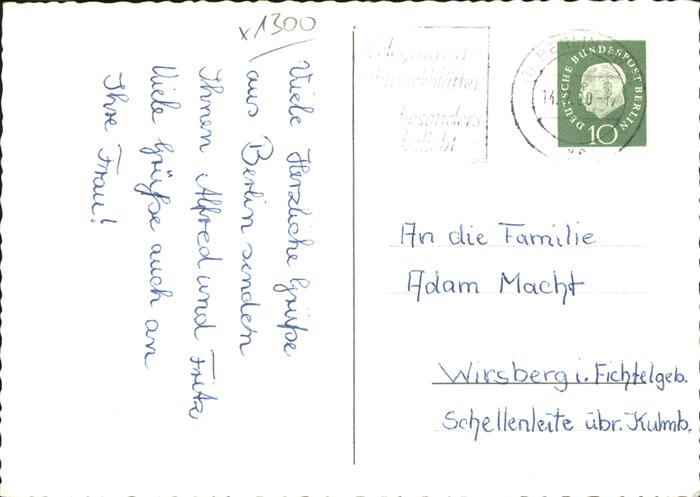 x1300
Viele Herzliche Grüße
aus Berlin senden
Ihnen Alfred und Fritz
Viele Grüße auch an
Ihre Frau!
besonders
beliebt
BERLIN
DEUTSCHE BUNDESPOST BERLIN
10
An die Familie
Adam Macht
Wirsberg i. Fichtelgeb.
Schellenleite übr. Kulmb.